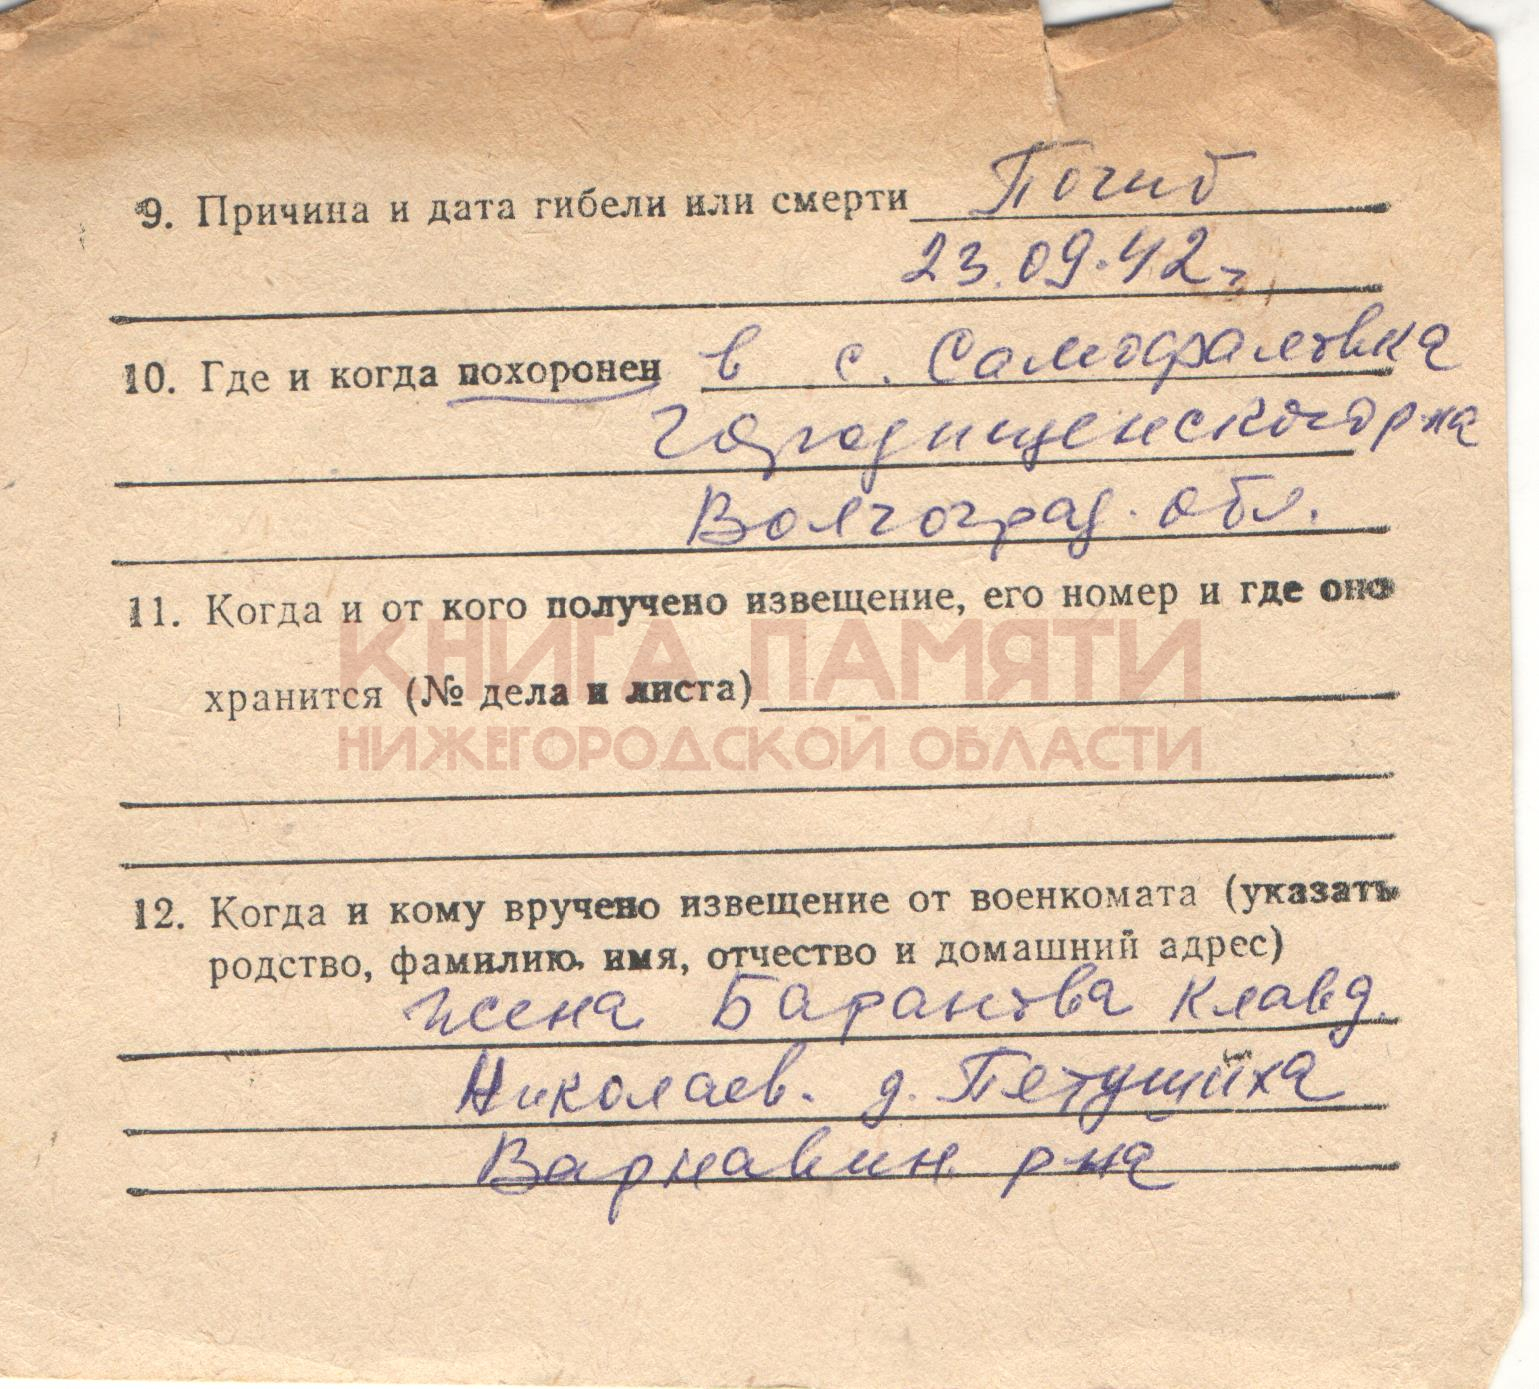 9. Причина и дата гибели или смерти Погиб
23.09.42 г.
10. Где и когда похоронен в с. Самофаловка
Городищенского р-на
Волгоград. обл.
11. Когда и от кого получено извещение, его номер и где оно
КНИГА ПАМЯТИ
хранится (№ дела и листа)
НИЖЕГОРОДСКОЙ ОБЛАСТИ
12. Когда и кому вручено извещение от военкомата (указать
родство, фамилию, имя, отчество и домашний адрес)
жена Баранова Клавд.
Николаев. д. Петушиха
Варнавин. р-на